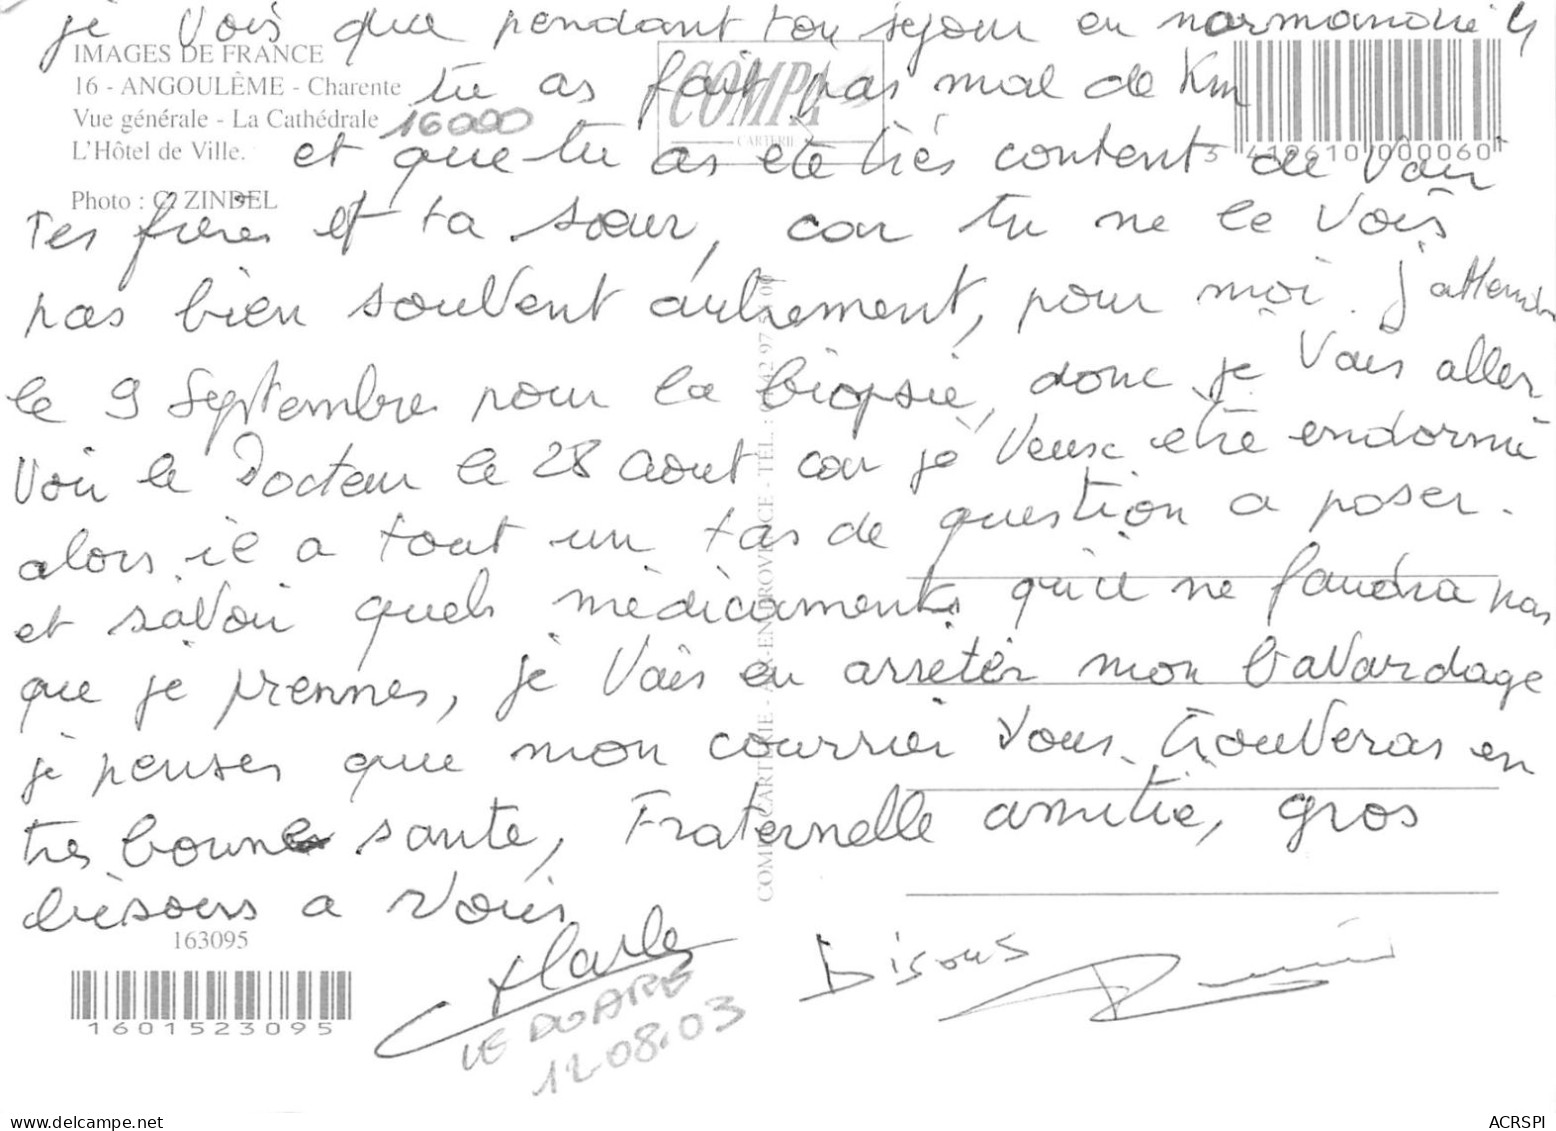 je vois que pendant ton sejour en normandie
IMAGES DE FRANCE
16 - ANGOULÊME - Charente
tu as fait pas mal de Km
COMPA
CARTERIE
Vue générale - La Cathédrale
16000
L'Hôtel de Ville.
et que tu as été très content de voir
3 418610 000060
Photo : C. ZINDEL
tes frères et ta sœur, car tu ne le vois
pas bien souvent autrement, pour moi. J'attends
le 9 Septembre pour la biopsie, donc je vais aller
voir le Docteur le 28 aout car je veux etre endormi
alors il a tout un tas de question a poser.
et savoir quels médicaments qu'il ne faudra pas
que je prennes, je vais en arrêter mon bavardage
je penses que mon courrier vous trouveras en
très bonne santé, Fraternelle amitié, gros
bisous a vous
COMPA CARTERIE - AIX-EN-PROVENCE - TEL. : 42 97
163095
1601523095
LE
12.08.03
Bisous
ACRSPI